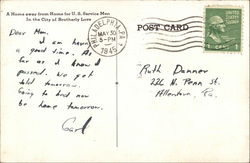 A Home away from Home for U. S. Service Men
In the City of Brotherly Love
POST CARD
PHILADELPHIA, PA.
MAY 30
5-PM
1945
1¢
Dear Mom.
I am having
a good time. As
far as I know I
passed. We get
told tomorrow.
Going to bed now
be home tomorrow.
Carl
Ruth Danner
226 N. Penn St.
Allentown,
Pa.